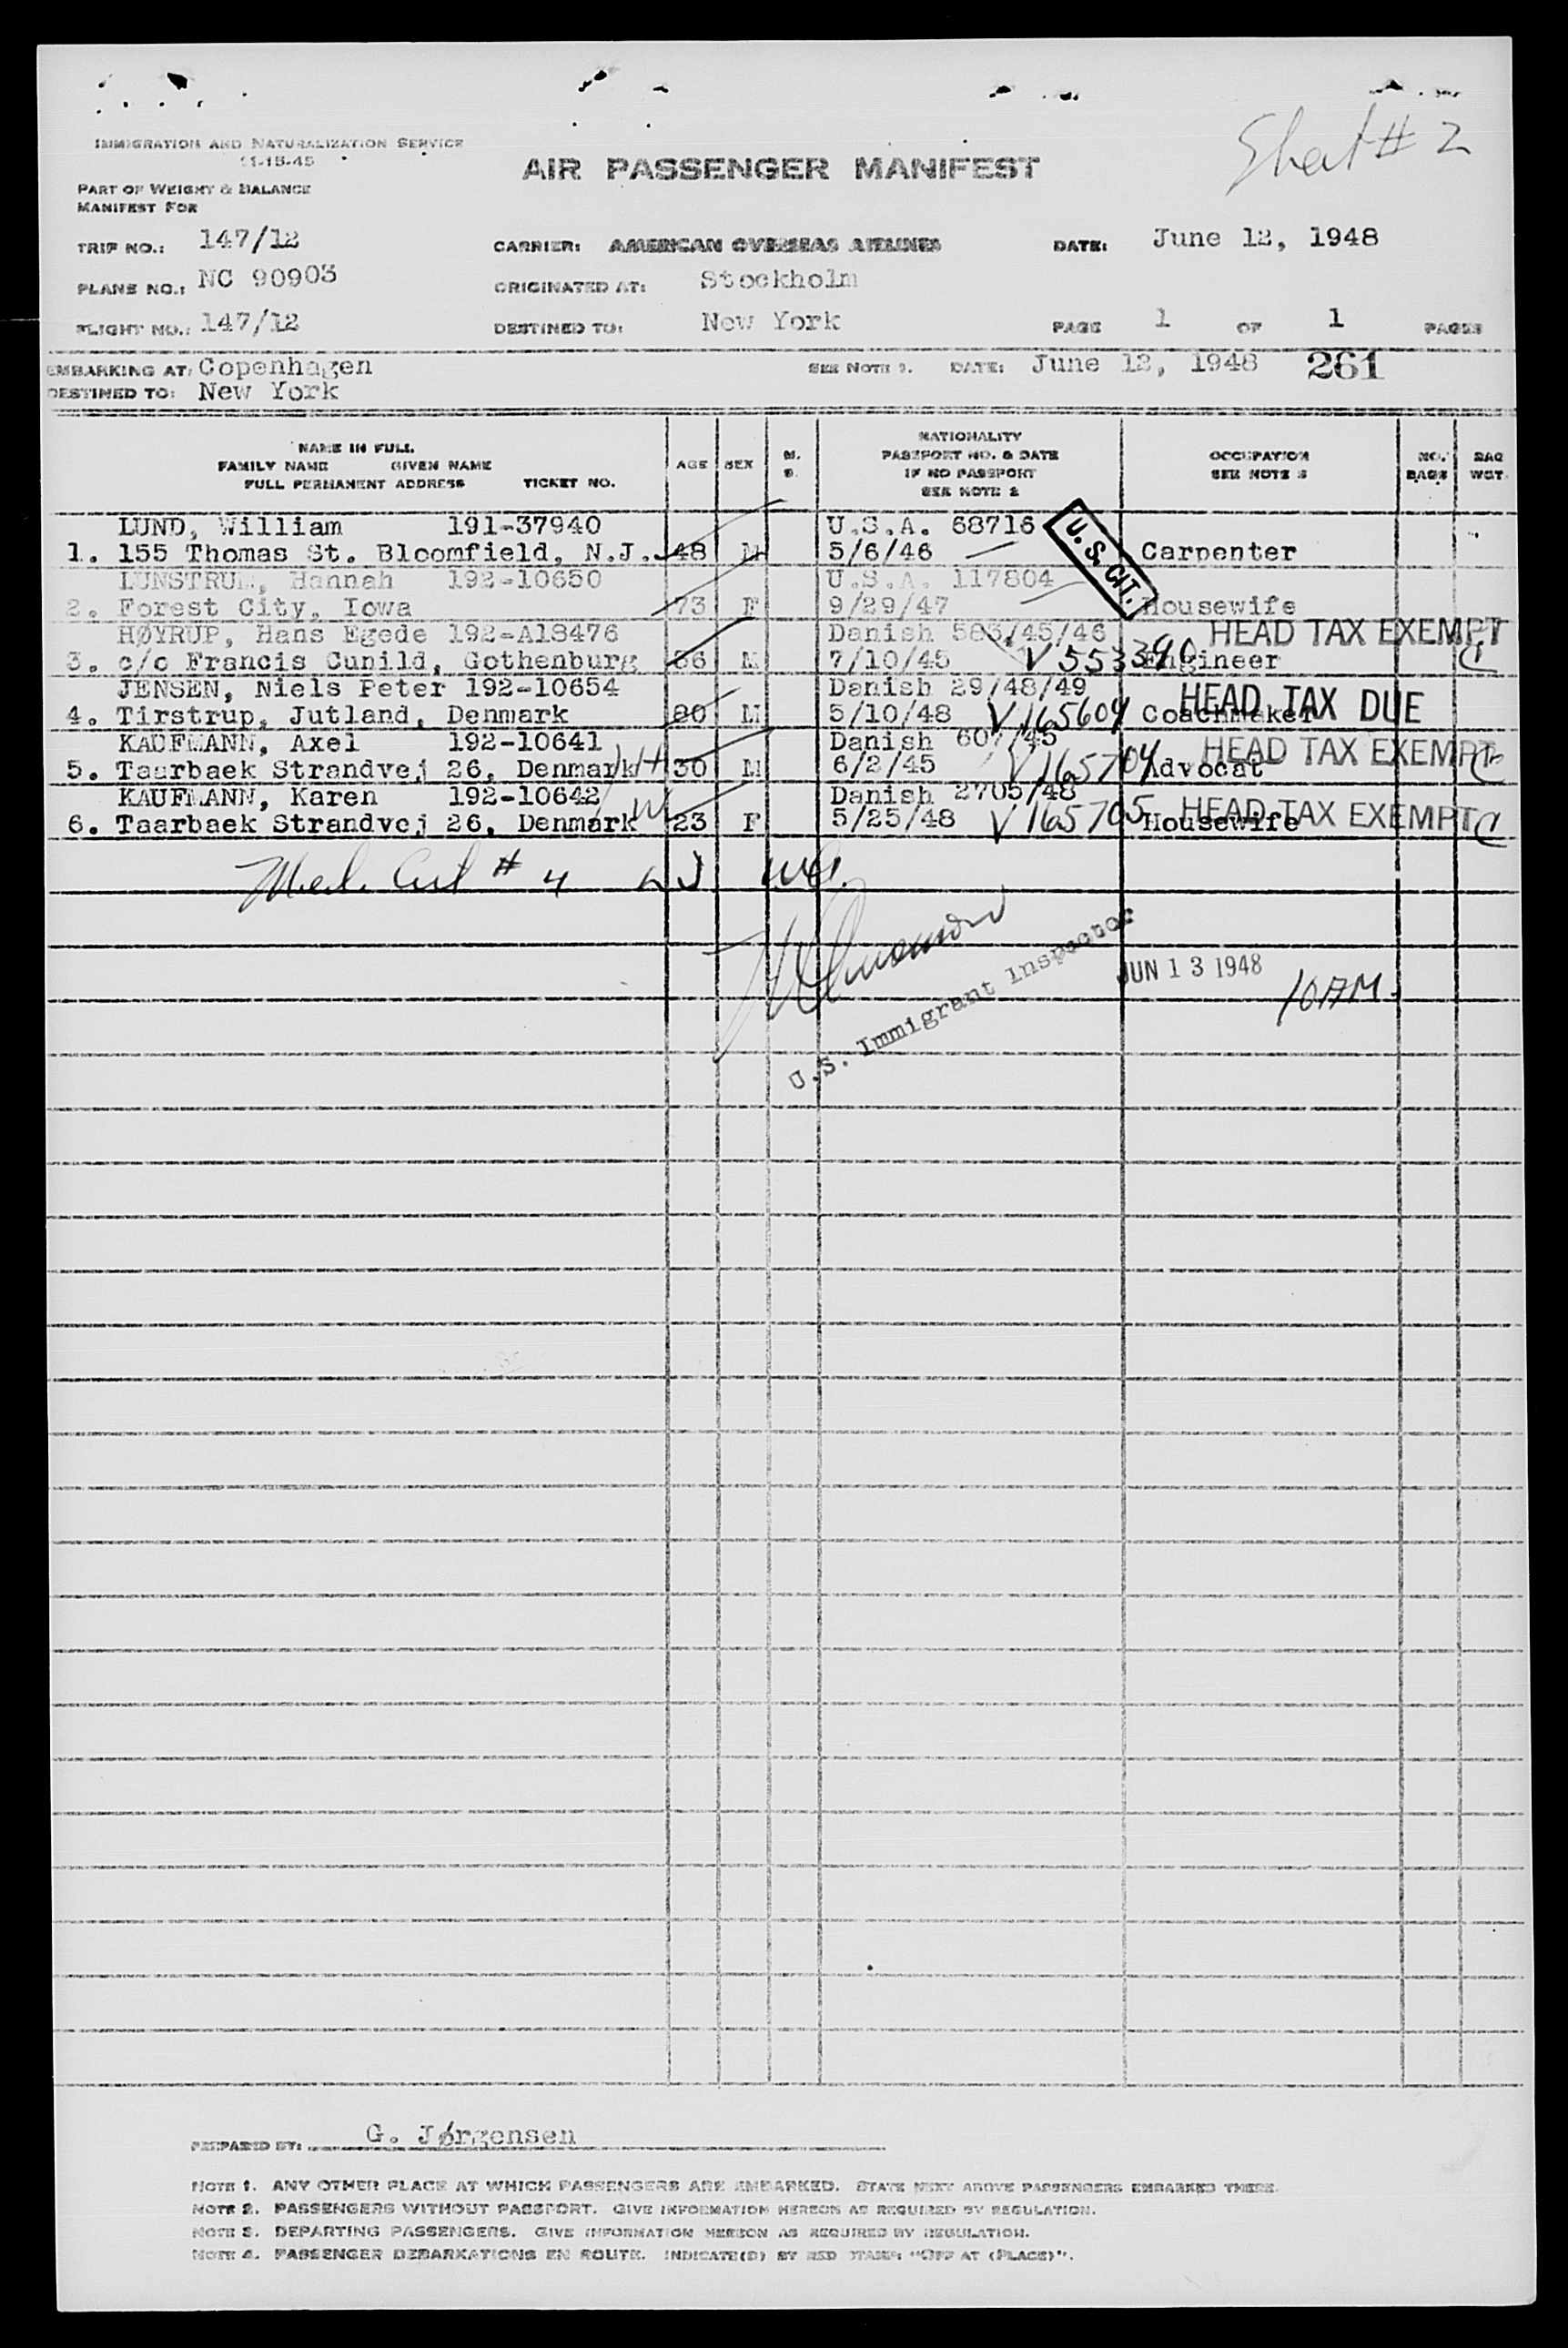 IMMIGRATION AND NATURALIZATION SERVICE
11-15-45
AIR PASSENGER MANIFEST
Sheet # 2
PART OF WEIGHT & BALANCE
MANIFEST FOR
TRIP NO.: 147/12 CARRIER: AMERICAN OVERSEAS AIRLINES DATE: June 12, 1948
PLANE NO.: NC 90903 ORIGINATED AT: Stockholm
FLIGHT NO.: 147/12 DESTINED TO: New York PAGE 1 OF 1 PAGES
EMBARKING AT: Copenhagen SEE NOTE 1. DATE: June 12, 1948 261
DESTINED TO: New York
NAME IN FULL
FAMILY NAME GIVEN NAME
FULL PERMANENT ADDRESS TICKET NO.
AGE SEX M. S.
NATIONALITY
PASSPORT NO. & DATE
IF NO PASSPORT
SEE NOTE 2
OCCUPATION
SEE NOTE 3
NO. BAGS
BAG WGT.
LUND, William 191-37940 U.S.A. 68716 U.S. CIT.
1. 155 Thomas St. Bloomfield, N.J. 48 M 5/6/46 Carpenter
LUNSTRUM, Hannah 192-10650 U.S.A. 117804
2. Forest City, Iowa 73 F 9/29/47 Housewife
HØYRUP, Hans Egede 192-A18476 Danish 583/45/46 HEAD TAX EXEMPT
3. c/o Francis Cunild, Gothenburg 36 M 7/10/45 V 553390 Engineer C
JENSEN, Niels Peter 192-10654 Danish 29/48/49 HEAD TAX DUE
4. Tirstrup, Jutland, Denmark 80 M 5/10/48 V 165604 Coachmaker
KAUFMANN, Axel 192-10641 Danish 607/45 HEAD TAX EXEMPT
5. Taarbaek Strandvej 26, Denmark H 30 M 6/2/45 V 165704 Advocat C
KAUFMANN, Karen 192-10642 Danish 2705/48 HEAD TAX EXEMPT
6. Taarbaek Strandvej 26, Denmark W 23 F 5/25/48 V 165705 Housewife C
Med. Cert # 4
U.S. Immigrant Inspector
JUN 13 1948
10AM
PREPARED BY: G. Jørgensen
NOTE 1. ANY OTHER PLACE AT WHICH PASSENGERS ARE EMBARKED. STATE NEXT ABOVE PASSENGERS EMBARKED THERE.
NOTE 2. PASSENGERS WITHOUT PASSPORT. GIVE INFORMATION HEREON AS REQUIRED BY REGULATION.
NOTE 3. DEPARTING PASSENGERS. GIVE INFORMATION HEREON AS REQUIRED BY REGULATION.
NOTE 4. PASSENGER DEBARKATIONS EN ROUTE. INDICATE(D) BY RED STAMP: "OFF AT (PLACE)".